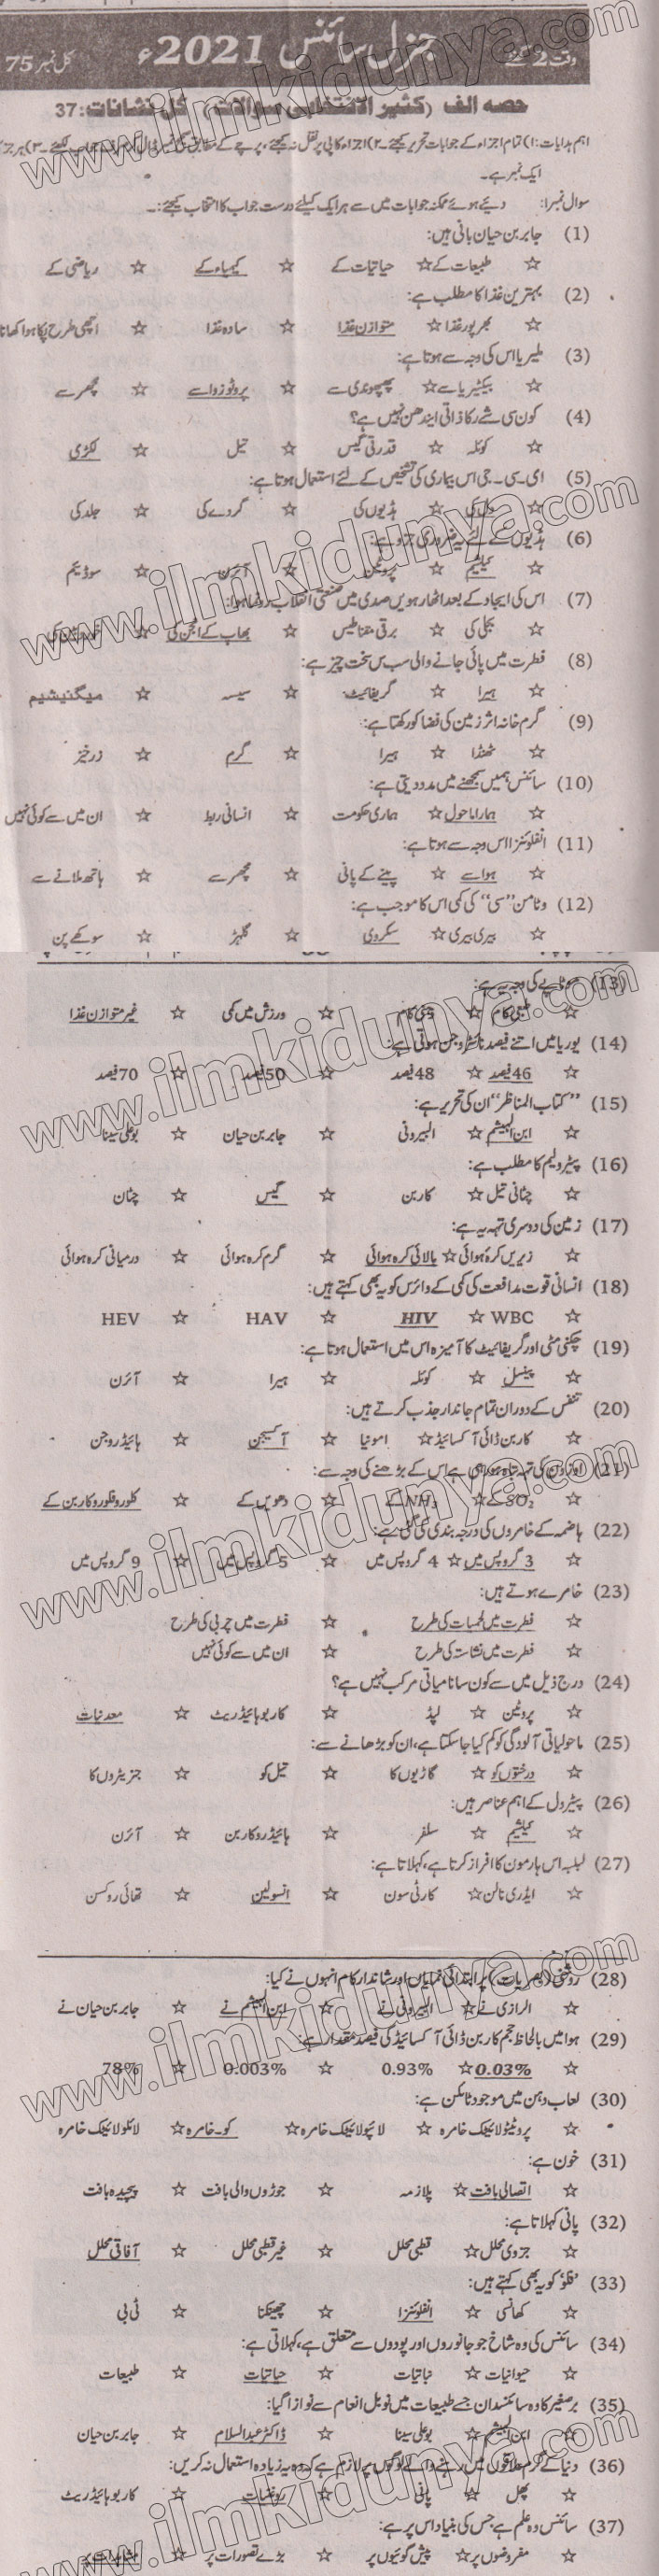 وقت 2 گھنٹے جنرل سائنس 2021ء کل نمبر 75
حصہ الف (کثیر الانتخابی سوالات) کل نشانات: 37
اہم ہدایات: ۱) تمام اجزاء کے جوابات تحریر کیجئے۔ ۲) اجزاء کاپی پر نقل نہ کیجئے، پرچے کے مطابق
ایک نمبر ہے۔
سوال نمبر ۱: دیئے ہوئے ممکنہ جوابات میں سے ہر ایک کیلئے درست جواب کا انتخاب کیجئے:۔
(1) جابر بن حیان بانی ہیں:
☆ طبیعات کے ☆ حیاتیات کے ☆ کیمیاء کے ☆ ریاضی کے
(2) بہترین غذا کا مطلب ہے:
☆ بھرپور غذا ☆ متوازن غذا ☆ سادہ غذا ☆ اچھی طرح پکا ہوا کھانا
(3) ملیریا اس کی وجہ سے ہوتا ہے:
☆ بیکٹیریا سے ☆ پھپھوندی سے ☆ پروٹوزوا سے ☆ مچھر سے
(4) کون سی شے رکازاتی ایندھن نہیں ہے؟
☆ کوئلہ ☆ قدرتی گیس ☆ تیل ☆ لکڑی
(5) ای۔سی۔جی اس بیماری کی تشخیص کے لئے استعمال ہوتا ہے:
☆ دل کی ☆ ہڈیوں کی ☆ گردے کی ☆ جلد کی
(6) ہڈیوں کے لئے یہ ضروری جزو ہے:
☆ کیلشیم ☆ پروٹین ☆ آئرن ☆ سوڈیم
(7) اس کی ایجاد کے بعد اٹھارہویں صدی میں صنعتی انقلاب رونما ہوا:
☆ بجلی کی ☆ برقی مقناطیس ☆ بھاپ کے انجن کی ☆
(8) فطرت میں پائی جانے والی سب س سخت چیز ہے:
☆ ہیرا ☆ گریفائیٹ ☆ سیسہ ☆ میگنیشیم
(9) گرم خانہ اثر زمین کی فضا کو رکھتا ہے:
☆ ٹھنڈا ☆ ہیرا ☆ گرم ☆ زرخیز
(10) سائنس ہمیں سمجھنے میں مدد دیتی ہے:
☆ ہمارا ماحول ☆ ہماری حکومت ☆ انسانی ربط ☆ ان میں سے کوئی نہیں
(11) انفلوئنزا اس وجہ سے ہوتا ہے:
☆ ہوا سے ☆ پینے کے پانی ☆ مچھر سے ☆ ہاتھ ملانے سے
(12) وٹامن ”سی“ کی کمی اس کا موجب ہے:
☆ بیری بیری ☆ سکروی ☆ گلہڑ ☆ سوکھے پن
(13) موٹاپے کی وجہ یہ ہے:
☆ ☆ ذہنی کام ☆ ورزش میں کمی ☆ غیر متوازن غذا
(14) یوریا میں اتنے فیصد نائٹروجن ہوتی ہے:
☆ 46 فیصد ☆ 48 فیصد ☆ 50 فیصد ☆ 70 فیصد
(15) ”کتاب المناظر“ ان کی تحریر ہے:
☆ ابن الہیثم ☆ البیرونی ☆ جابر بن حیان ☆ بوعلی سینا
(16) پیٹرولیم کا مطلب ہے:
☆ چٹانی تیل ☆ کاربن ☆ گیس ☆ چٹان
(17) زمین کی دوسری تہہ یہ ہے:
☆ زیریں کرۂ ہوائی ☆ بالائی کرہ ہوائی ☆ گرم کرہ ہوائی ☆ درمیانی کرہ ہوائی
(18) انسانی قوت مدافعت کی کمی کے وائرس کو یہ بھی کہتے ہیں:
☆ WBC ☆ HIV ☆ HAV ☆ HEV
(19) چکنی مٹی اور گریفائیٹ کا آمیزہ اس میں استعمال ہوتا ہے:
☆ پینسل ☆ کوئلہ ☆ ہیرا ☆ آئرن
(20) تنفس کے دوران تمام جاندار جذب کرتے ہیں:
☆ کاربن ڈائی آکسائیڈ ☆ امونیا ☆ آکسیجن ☆ ہائیڈروجن
(21) اوزون کی تہہ تباہ ہو رہی ہے اس کے بڑھنے کی وجہ سے:
☆ SO₂ کے ☆ NH₃ کے ☆ دھویں کے ☆ کلوروفلوروکاربن کے
(22) ہاضمہ کے خامروں کی درجہ بندی کی گئی ہے:
☆ 3 گروپس میں ☆ 4 گروپس میں ☆ 5 گروپس میں ☆ 9 گروپس میں
(23) خامرے ہوتے ہیں:
☆ فطرت میں لحمیات کی طرح ☆ فطرت میں چربی کی طرح
☆ فطرت میں نشاستہ کی طرح ☆ ان میں سے کوئی نہیں
(24) درج ذیل میں سے کون سا نامیاتی مرکب نہیں ہے؟
☆ پروٹین ☆ لپڈ ☆ کاربوہائیڈریٹ ☆ معدنیات
(25) ماحولیاتی آلودگی کو کم کیا جاسکتا ہے، ان کو بڑھانے سے:
☆ درختوں کو ☆ گاڑیوں کا ☆ تیل کو ☆ جنریٹروں کا
(26) پیٹرول کے اہم عناصر ہیں:
☆ کیلشیم ☆ سلفر ☆ ہائیڈروکاربن ☆ آئرن
(27) لبلبہ اس ہارمون کا افراز کرتا ہے، کہلاتا ہے:
☆ ایڈری نالن ☆ کارٹی سون ☆ انسولین ☆ تھائی روکسن
(28) روشنی (بصریات) پر ابتدائی نمایاں اور شاندار کام انہوں نے کیا:
☆ الرازی نے ☆ البیرونی نے ☆ ابن الہیثم نے ☆ جابر بن حیان نے
(29) ہوا میں بالحاظ حجم کاربن ڈائی آکسائیڈ کی فیصد مقدار ہے:
☆ 0.03% ☆ 0.93% ☆ 0.003% ☆ 78%
(30) لعاب دہن میں موجود ٹائلن ہے:
☆ پروٹیولائیٹک خامرہ ☆ لائپولائیٹک خامرہ ☆ کو۔خامرہ ☆ لائکولائیٹک خامرہ
(31) خون ہے:
☆ اتصالی بافت ☆ پلازمہ ☆ جوڑوں والی بافت ☆ پیچیدہ بافت
(32) پانی کہلاتا ہے:
☆ جزوی محلل ☆ قطبی محلل ☆ غیر قطبی محلل ☆ آفاقی محلل
(33) ’فلو‘ کو یہ بھی کہتے ہیں:
☆ کھانسی ☆ انفلوئنزا ☆ چھینکنا ☆ ٹی بی
(34) سائنس کی وہ شاخ جو جانوروں اور پودوں سے متعلق ہے، کہلاتی ہے:
☆ حیوانیات ☆ نباتیات ☆ حیاتیات ☆ طبیعات
(35) برصغیر کا وہ سائنسدان جسے طبیعات میں نوبل انعام سے نوازا گیا:
☆ ابن الہیثم ☆ بوعلی سینا ☆ ڈاکٹر عبدالسلام ☆ جابر بن حیان
(36) دنیا کے گرم علاقوں میں رہنے والے لوگوں پر لازم ہے کہ وہ یہ زیادہ استعمال نہ کریں:
☆ پھل ☆ پانی ☆ روغنیات ☆ کاربوہائیڈریٹ
(37) سائنس وہ علم ہے جس کی بنیاد اس پر ہے:
☆ مفروضوں پر ☆ پیش گوئیوں پر ☆ بڑے تصورات پر ☆ مشاہدات پر
www.ilmkidunya.com
www.ilmkidunya.com
www.ilmkidunya.com
www.ilmkidunya.com
www.ilmkidunya.com